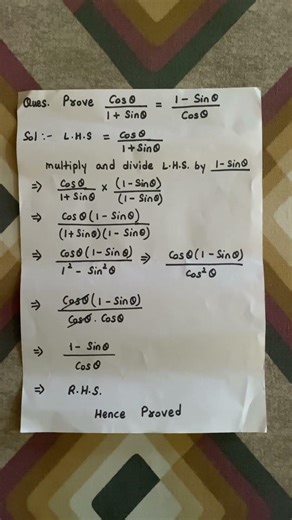 Ques. Prove Cosθ / 1 + Sinθ = 1 - Sinθ / Cosθ
Sol :- L.H.S = Cosθ / 1 + Sinθ
multiply and divide L.H.S. by 1 - Sinθ
⇒ Cosθ / 1 + Sinθ × (1 - Sinθ) / (1 - Sinθ)
⇒ Cosθ (1 - Sinθ) / (1 + Sinθ) (1 - Sinθ)
⇒ Cosθ (1 - Sinθ) / 1² - Sin²θ ⇒ Cosθ (1 - Sinθ) / Cos²θ
⇒ Cosθ (1 - Sinθ) / Cosθ . Cosθ
⇒ 1 - Sinθ / Cosθ
⇒ R.H.S.
Hence Proved